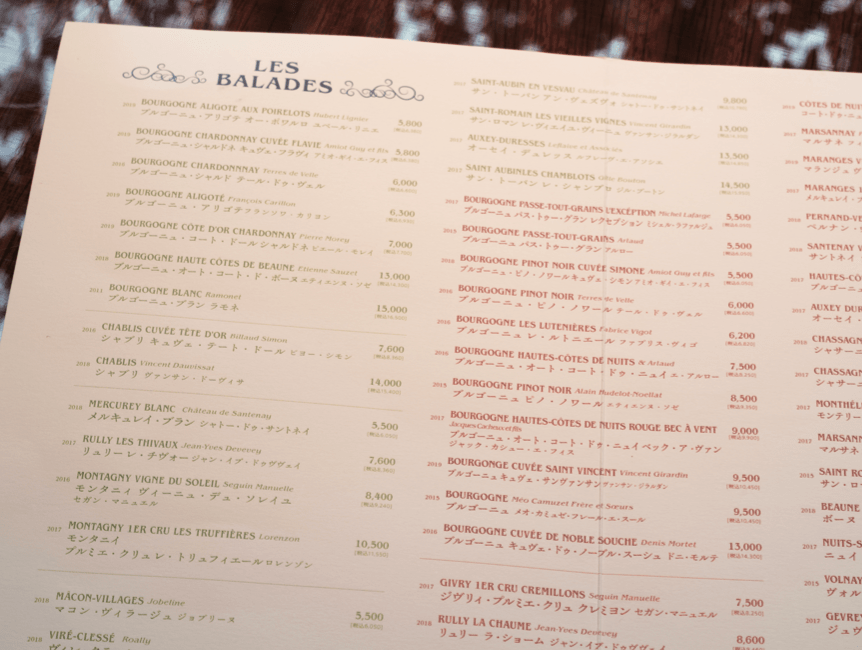 LES
BALADES
BOURGOGNE ALIGOTE AUX POIRELOTS Hubert Lignier 5,800
ブルゴーニュ・アリゴテ オー・ポワルロ ユベール・リニエ
BOURGOGNE CHARDONNAY CUVÉE FLAVIE Amiot Guy et fils 5,800
ブルゴーニュ・シャルドネ キュヴェ・フラヴィ アミオ・ギイ・エ・フィス
BOURGOGNE CHARDONNNAY Terres de Velle 6,000
ブルゴーニュ・シャルド テール・ドゥ・ヴェル
BOURGOGNE ALIGOTÉ François Carillon 6,300
ブルゴーニュ・アリゴテ フランソワ・カリヨン
BOURGOGNE CÔTE D'OR CHARDONNAY Pierre Morey 7,000
ブルゴーニュ・コート・ドール シャルドネ ピエール・モレイ
BOURGOGNE HAUTE CÔTES DE BEAUNE Etienne Sauzet 13,000
ブルゴーニュ・オート・コート・ド・ボーヌ エティエンヌ・ソゼ
BOURGOGNE BLANC Ramonet 15,000
ブルゴーニュ・ブラン ラモネ
2018 CHABLIS CUVÉE TÊTE D'OR Billaud Simon 7,600
シャブリ キュヴェ・テート・ドール ビヨー・シモン
2018 CHABLIS Vincent Dauvissat 14,000
シャブリ ヴァンサン・ドーヴィサ
2018 MERCUREY BLANC Château de Santenay 5,500
メルキュレイ・ブラン シャトー・ドゥ・サントネイ
2017 RULLY LES THIVAUX Jean-Yves Devevey 7,600
リュリー レ・チヴォー ジャン・イブ・ドゥヴヴェイ
2016 MONTAGNY VIGNE DU SOLEIL Seguin Manuelle 8,400
モンタニィ ヴィーニュ・デュ・ソレイユ
セガン・マニュエル
2017 MONTAGNY 1ER CRU LES TRUFFIÈRES Lorenzon 10,500
モンタニイ
プルミエ・クリュ レ・トリュフィエール ロレンゾン
2016 MÂCON-VILLAGES Jobeline 5,500
マコン・ヴィラージュ ジョブリーヌ
2018 VIRÉ-CLESSÉ Roally
SAINT-AUBIN EN VESVAU Château de Santenay 9,800
サン・トーバン アン・ヴェズヴォ シャトー・ドゥ・サントネイ
SAINT-ROMAIN LES VIEILLES VIGNES Vincent Girardin 13,000
サン・ロマン レ・ヴィエイユ・ヴィーニュ ヴァンサン・ジラルダン
AUXEY-DURESSES 13,500
オーセイ・デュレッス
SAINT AUBINLES CHAMBLOTS Gille Bouton 14,500
サン・トーバン レ・シャンブロ ジル・ブートン
2017 BOURGOGNE PASSE-TOUT-GRAINS L'EXCEPTION Michel Lafarge 5,500
ブルゴーニュ パス・トゥー・グラン レクセプション ミシェル・ラファルジュ
BOURGOGNE PASSE-TOUT-GRAINS Artaud 5,500
ブルゴーニュ パス・トゥー・グラン アルロー
2018 BOURGOGNE PINOT NOIR CUVÉE SIMONE Amiot Guy et fils 5,500
ブルゴーニュ・ピノ・ノワール キュヴェ・シモン アミオ・ギイ・エ・フィス
BOURGOGNE PINOT NOIR Terres de Velle 6,000
ブルゴーニュ・ピノ・ノワール テール・ドゥ・ヴェル
2016 BOURGOGNE LES LUTENIÈRES Fabrice Vigot 6,200
ブルゴーニュ レ・ルトニエール ファブリス・ヴィゴ
2016 BOURGOGNE HAUTES-CÔTES DE NUITS & Artaud 7,500
ブルゴーニュ・オート・コート・ドゥ・ニュイ エ・アルロー
2015 BOURGOGNE PINOT NOIR Alain Hudelot-Noellat 8,500
ブルゴーニュ ピノ・ノワール エティエンヌ・ソゼ
2017 BOURGOGNE HAUTES-CÔTES DE NUITS ROUGE BEC À VENT 9,000
Jacques Cacheux et fils
ブルゴーニュ・オート・コート・ドゥ・ニュイ ベック・ア・ヴァン
ジャック・カシュー・エ・フィス
2019 BOURGONGE CUVÉE SAINT VINCENT Vincent Girardin 9,500
ブルゴーニュ キュヴェ・サンヴァンサン ヴァンサン・ジラルダン
2015 BOURGOGNE Méo Camuzet Frère et Sœurs 9,500
ブルゴーニュ メオ・カミュゼ・フレール・エ・スール
2016 BOURGOGNE CUVÉE DE NOBLE SOUCHE Denis Mortet 13,000
ブルゴーニュ キュヴェ・ドゥ・ノーブル・スーシュ ドニ・モルテ
2017 GIVRY 1ER CRU CREMILLONS Seguin Manuelle 7,500
ジヴリィ・プルミエ・クリュ クレミヨン セガン・マニュエル
2018 RULLY LA CHAUME Jean-Yves Devevey 8,600
リュリー ラ・ショーム ジャン・イブ・ドゥヴヴェイ
CÔTES DE NUI
MARSANNAY
マルサネ
MARANGES V
マランジュ
MARANGES
メルキュレイ
PERNAND-VE
ペルナン
SANTENAY
サントネイ
HAUTES-CÔ
AUXEY DUR
オーセイ
CHASSAGN
シャサーニ
CHASSAGN
シャサーニ
MONTHÉLI
モンテリー
MARSANN
マルサネ
SAINT RO
サン・ロ
BEAUNE
ボーヌ
NUITS-S
ニュイ
2015 VOLNAY
ヴォル
GEVREY
ジュヴ